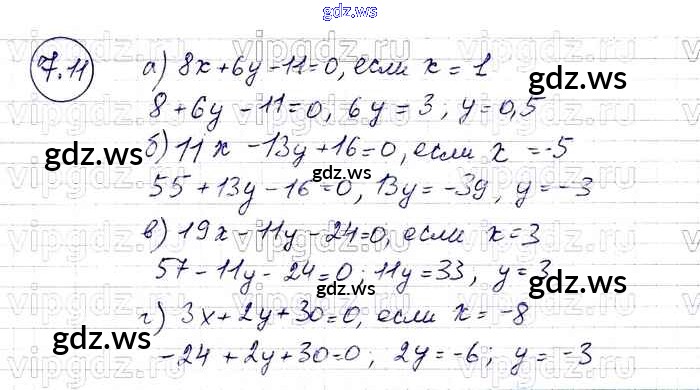 gdz.ws
7.11 а) 8x+6y-11=0, если x=1
8+6y-11=0, 6y=3; y=0,5
б) 11x-13y+16=0, если x=-5
55+13y-16=0, 13y=-39, y=-3
в) 19x-11y-24=0, если x=3
57-11y-24=0; 11y=33, y=3
г) 3x+2y+30=0, если x=-8
-24+2y+30=0; 2y=-6; y=-3
gdz.ws
gdz.ws
gdz.ws
gdz.ws
gdz.ws
gdz.ws
gdz.ws